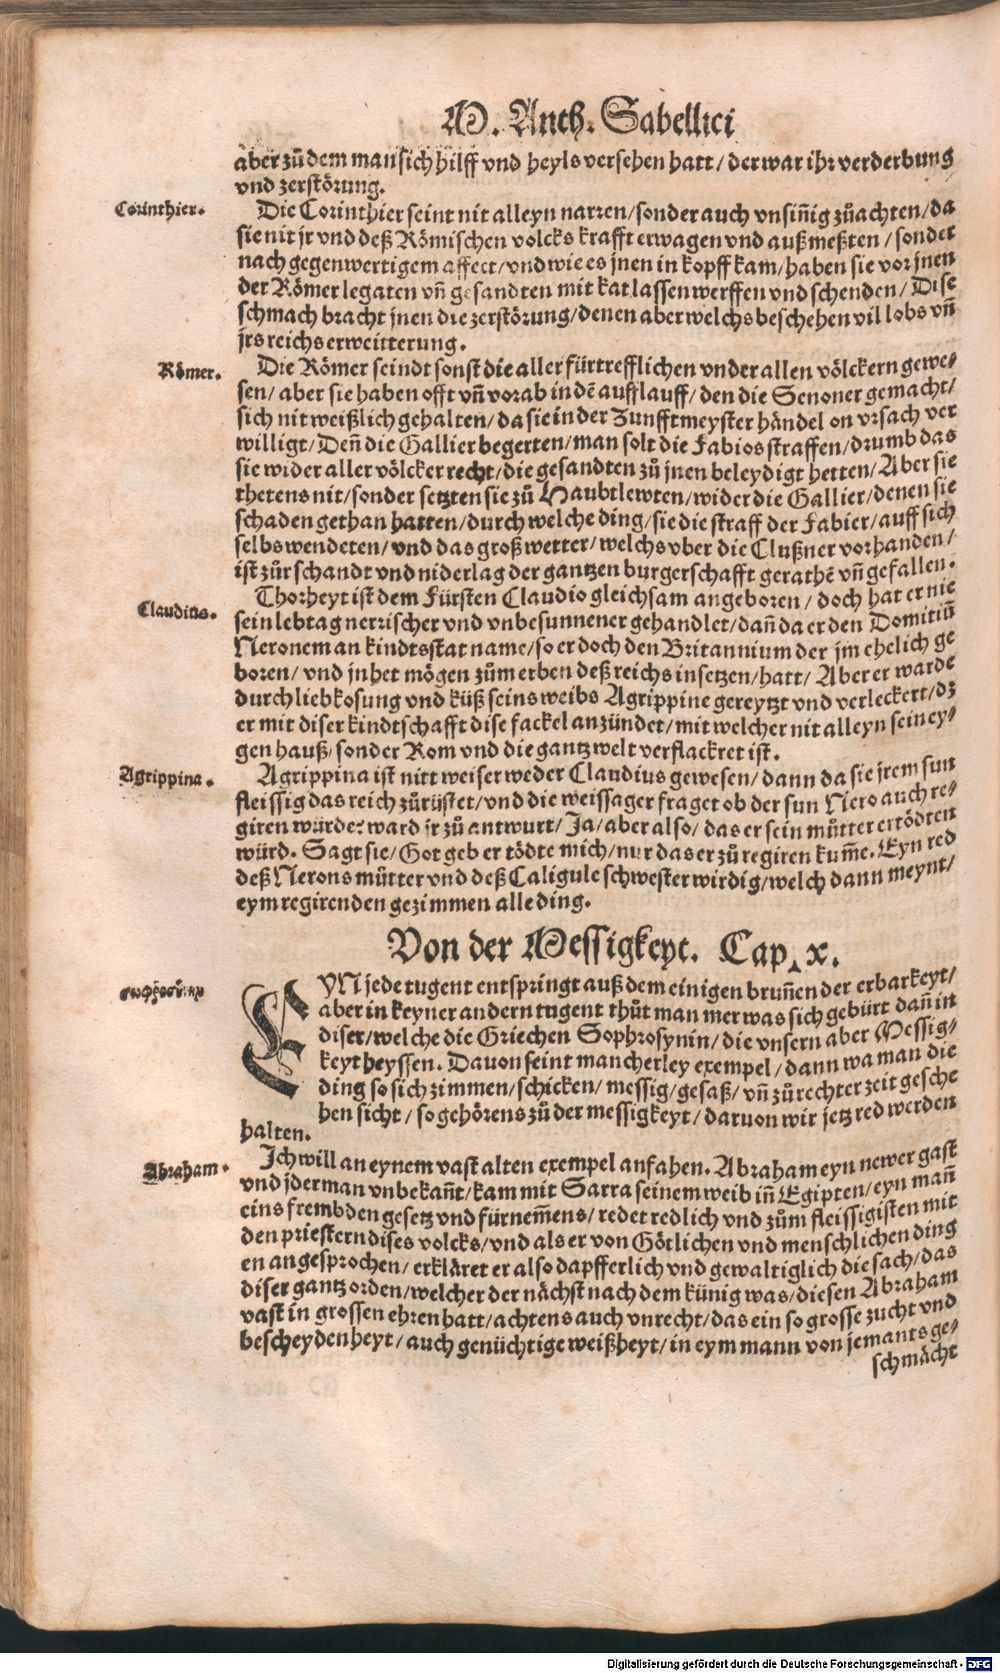 M. Anth. Sabellici
aber zů dem man sich hilff vnd heyls versehen hatt / der war ihr verderbung
vnd zerstörung.
Corinthier.
Die Corinthier seint nit alleyn narren / sonder auch vnsiñig zůachten / da
sie nit jr vnd deß Römischen volcks krafft erwagen vnd außmeßten / sonder
nach gegenwertigem affect / vnd wie es jnen in kopff kam / haben sie vor jnen
der Römer legaten vñ gesandten mit kat lassen werffen vnd schenden / Dise
schmach bracht jnen die zerstörung / denen aber welchs beschehen vil lobs vñ
jrs reichs erweitterung.
Römer.
Die Römer seindt sonst die aller fürtrefflichen vnder allen völckern gewe⸗
sen / aber sie haben offt vñ vorab in dē aufflauff / den die Senoner gemacht /
sich nit weißlich gehalten / da sie in der Zunfftmeyster händel on vrsach ver
willigt / Deñ die Gallier begerten / man solt die Fabios straffen / drumb das
sie wider aller völcker recht / die gesandten zů jnen beleydigt hetten / Aber sie
thetens nit / sonder setzten sie zů Haubtlewten / wider die Gallier / denen sie
schaden gethan hatten / durch welche ding / sie die straff der Fabier / auff sich
selbs wendeten / vnd das groß wetter / welchs vber die Clußner vorhanden /
ist zůr schandt vnd niderlag der gantzen burgerschafft gerathē vñ gefallen.
Claudius.
Thorheyt ist dem Fürsten Claudio gleichsam angeboren / doch hat er nie
sein lebtag nerrischer vnd vnbesunnener gehandlet / dañ da er den Domitiū
Neronem an kindtsstat name / so er doch den Britannium der jm ehelich ge
boren / vnd jn het mögen zům erben deß reichs insetzen / hatt / Aber er warde
durch liebkosung vnd küß seins weibs Agrippine gereytzt vnd verleckert / dz
er mit diser kindtschafft dise fackel anzündet / mit welcher nit alleyn sein ey⸗
gen hauß / sonder Rom vnd die gantz welt verflackret ist.
Agrippina.
Agrippina ist nitt weiser weder Claudius gewesen / dann da sie jrem sun
fleissig das reich zůrüstet / vnd die weissager fraget ob der sun Nero auch re⸗
giren würde: ward jr zů antwurt / Ja / aber also / das er sein můtter ertödten
würd. Sagt sie / Got geb er tödte mich / nur das er zů regiren kum̃e. Eyn red
deß Nerons můtter vnd deß Caligule schwester wirdig / welch dann meynt /
eym regirenden gezimmen alle ding.
Von der Messigkeyt. Cap. x.
σωφροσύνη
EYN jede tugent entspringt auß dem einigen bruñen der erbarkeyt /
aber in keyner andern tugent thůt man mer was sich gebürt dañ in
diser / welche die Griechen Sophrosynin / die vnsern aber Messig⸗
keyt heyssen. Dauon seint mancherley exempel / dann wa man die
ding so sich zimmen / schicken / messig / gesaß / vñ zů rechter zeit gesche
hen sicht / so gehörens zů der messigkeyt / daruon wir jetz red werden
halten.
Abraham.
Ich will an eynem vast alten exempel anfahen. Abraham eyn newer gast
vnd jderman vnbekañt / kam mit Sarra seinem weib iñ Egipten / eyn mañ
eins frembden gesetz vnd fürnem̃ens / redet redlich vnd zům fleissigisten mit
den priestern dises volcks / vnd als er von Götlichen vnd menschlichen ding
en angesprochen / erkläret er also dapfferlich vnd gewaltiglich die sach / das
diser gantz orden / welcher der nächst nach dem künig was / diesen Abraham
vast in grossen ehren hatt / achtens auch vnrecht / das ein so grosse zucht vnd
bescheydenheyt / auch genüchtige weißheyt / in eym mann von jemants ge⸗
schmächt
Digitalisierung gefördert durch die Deutsche Forschungsgemeinschaft - DFG